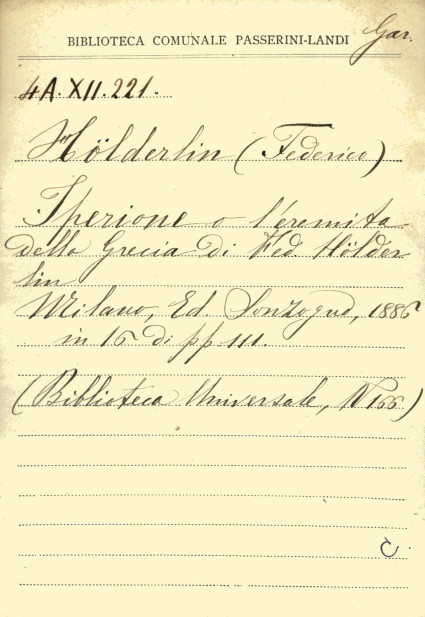 Gar.
BIBLIOTECA COMUNALE PASSERINI-LANDI
4A. XII. 221.
Hölderlin (Federico)
Iperione o l'eremita
della Grecia di Fed. Hölder
lin
Milano, Ed. Sonzogno, 1886
in 16 di pp 111.
(Biblioteca Universale, N 166)
C.